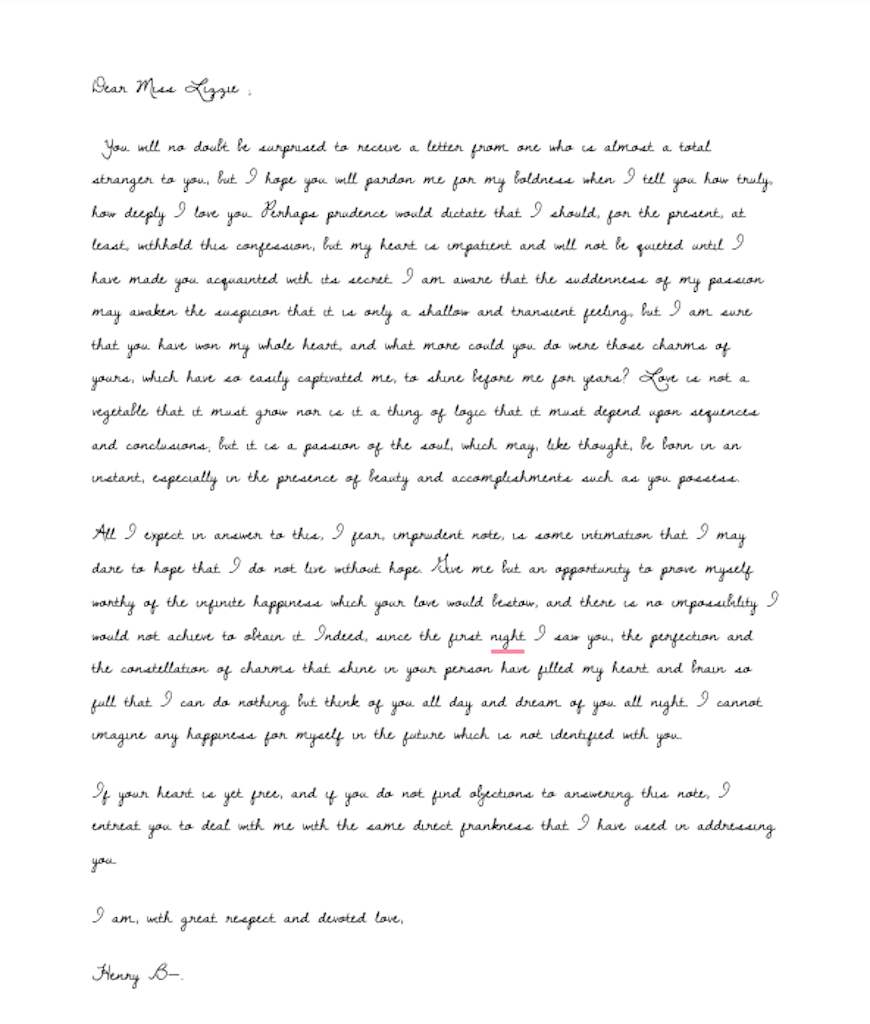 Dear Miss Lizzie ,
You will no doubt be surprised to receive a letter from one who is almost a total
stranger to you, but I hope you will pardon me for my boldness when I tell you how truly,
how deeply I love you. Perhaps prudence would dictate that I should, for the present, at
least, withhold this confession, but my heart is impatient and will not be quieted until I
have made you acquainted with its secret. I am aware that the suddenness of my passion
may awaken the suspicion that it is only a shallow and transient feeling, but I am sure
that you have won my whole heart, and what more could you do were those charms of
yours, which have so easily captivated me, to shine before me for years? Love is not a
vegetable that it must grow nor is it a thing of logic that it must depend upon sequences
and conclusions, but it is a passion of the soul, which may, like thought, be born in an
instant, especially in the presence of beauty and accomplishments such as you possess.
All I expect in answer to this, I fear, imprudent note, is some intimation that I may
dare to hope that I do not live without hope. Give me but an opportunity to prove myself
worthy of the infinite happiness which your love would bestow, and there is no impossibility I
would not achieve to obtain it. Indeed, since the first night I saw you, the perfection and
the constellation of charms that shine in your person have filled my heart and brain so
full that I can do nothing but think of you all day and dream of you all night. I cannot
imagine any happiness for myself in the future which is not identified with you.
If your heart is yet free, and if you do not find objections to answering this note, I
entreat you to deal with me with the same direct frankness that I have used in addressing
you.
I am, with great respect and devoted love,
Henry B—.